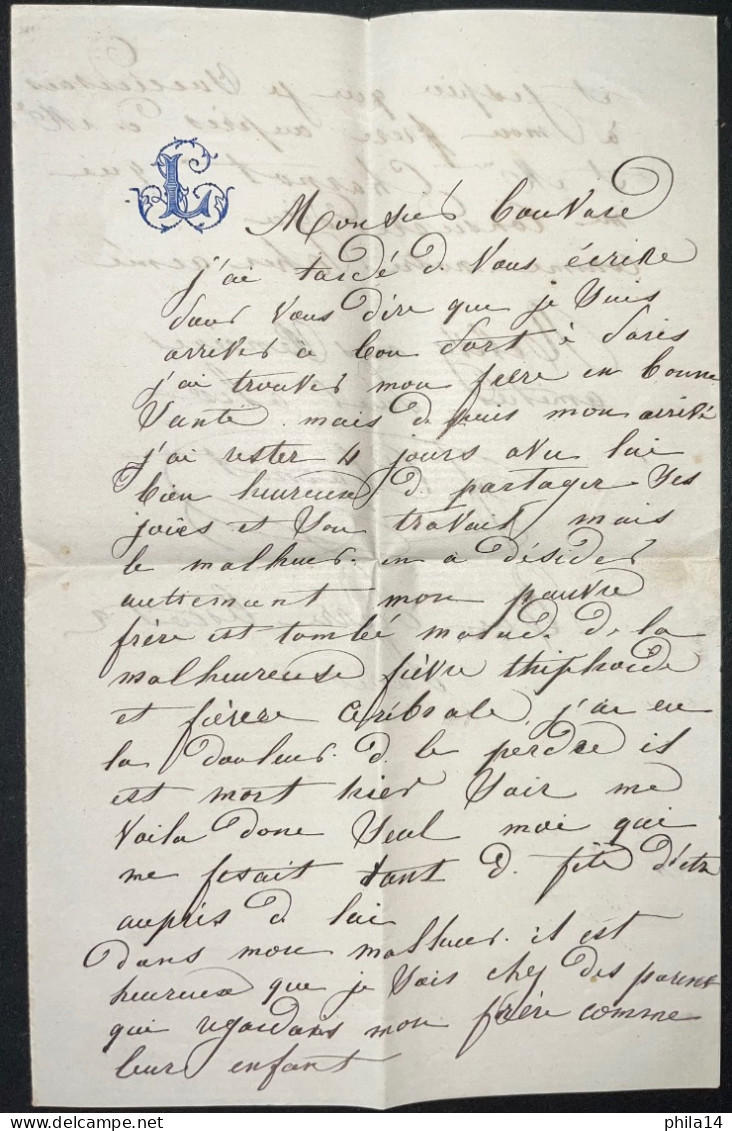 CL
Monsieur Bouvare
j'ai tardé d. Vous écrire
pour Vous dire que je Suis
arriver a bon port à Paris
j'ai trouver mon frère en bonne
Santé. mais depuis mon arrivé
j'ai rester 4 jours avec lui
bien heureux d. partager Ses
joies et Son travail mais
le malheur. en a désider
autremant mon pauvre
frère est tombé malad. de la
malheureuse fièvre thiphoïde
et fièvre Ceribrale, j'ai eu
la douleur. d. le perdre il
est mort hier Soir me
Voila donc Seul moi qui
me fesait tant d. fête d'etre
auprès d. lui
dans mon malheur. il est
heureux que je Sois chez des parent
qui regardais mon frère comme
leur enfant
phila14